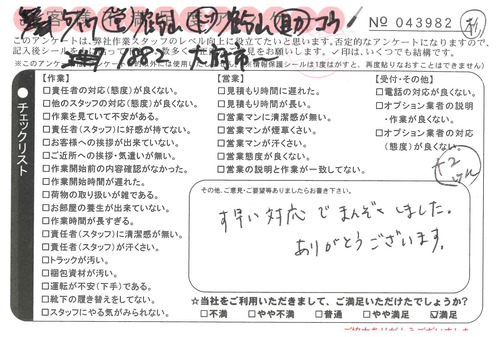 No 043982
このアンケートは、弊社作業スタッフのレベル向上に役立てたいと思います。否定的なアンケートになりますので、
【作業】
□責任者の対応(態度)が良くない。
□他のスタッフの対応(態度)が良くない。
□作業を見ていて不安がある。
□責任者(スタッフ)に好感が持てない。
□お客様への挨拶が出来ていない。
□ご近所への挨拶・気遣いが無い。
□作業開始前の内容確認がなかった。
□作業開始時間が遅れた。
□荷物の取り扱いが雑である。
□お部屋の養生が出来ていない。
□作業時間が長すぎる。
□責任者(スタッフ)に清潔感が無い。
□責任者(スタッフ)が汗くさい。
□トラックが汚い。
□梱包資材が汚い。
□運転が不安(下手)である。
□靴下の履き替えをしてない。
□スタッフにやる気がみられない。
【営業】
□見積もり時間に遅れた。
□見積もり時間が長い。
□営業マンに清潔感が無い。
□営業マンが煙草くさい。
□営業マンが汗くさい。
□営業態度が良くない。
□営業の説明と作業が一致してない。
【受付・その他】
□電話の対応が良くない。
□オプション業者の説明
・作業が良くない。
□オプション業者の対応
(態度)が良くない。
チェックリスト
その他、ご意見・ご要望等ありましたらお書き下さい。
す早い対応でまんぞくしました。
ありがとうございます。
☆当社をご利用いただきまして、ご満足いただけたでしょうか?
□不満 □やや不満 □普通 □やや満足 ☑満足